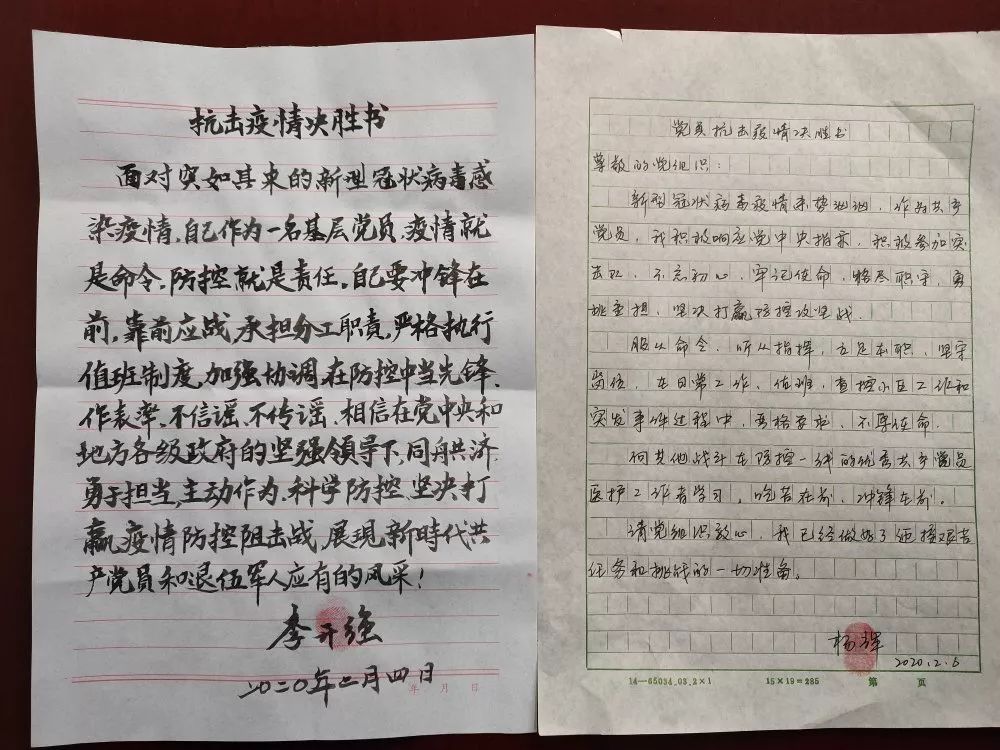 抗击疫情决胜书
面对突如其来的新型冠状病毒感
染疫情,自己作为一名基层党员,疫情就
是命令,防控就是责任。自己要冲锋在
前,靠前应战,承担分工职责,严格执行
值班制度,加强协调,在防控中当先锋、
作表率、不信谣、不传谣、相信在党中央和
地方各级政府的坚强领导下,同舟共济,
勇于担当,主动作为,科学防控,坚决打
赢疫情防控阻击战,展現新時代共
产党员和退伍军人应有的风采!
李开强
二〇二〇年二月四日
年 月 日
党员抗击疫情决胜书
尊敬的党组织:
新型冠状病毒疫情来势汹汹,作为共产
党员,我积极响应党中央指示,积极参加突
击队,不忘初心、牢记使命,恪尽职守,勇
担重担,坚决打赢防控攻坚战。
服从命令,听从指挥,立足本职,坚守
岗位,在日常工作、值班,查控小区工作和
突发事件过程中,严格要求,不辱使命。
向其他战斗在防控一线的优秀共产党员
医护工作者学习,吃苦在前,冲锋在前。
请党组织放心,我已经做好了迎接艰苦
任务和挑战的一切准备。
杨辉
2020.2.6
14—65034.03.2×1 15×19=285 第 页